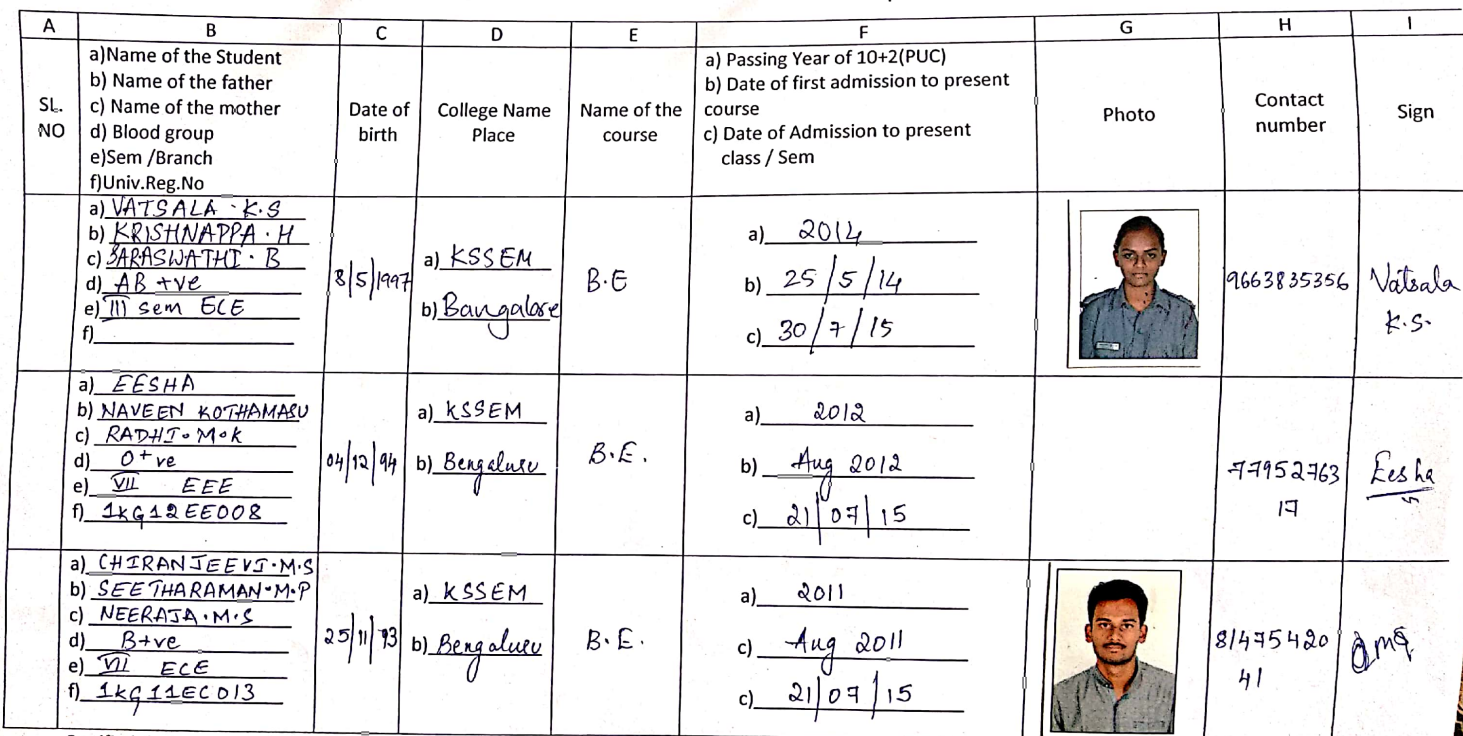 A B C D E F G H I
SL. NO
a)Name of the Student
b) Name of the father
c) Name of the mother
d) Blood group
e)Sem /Branch
f)Univ.Reg.No
Date of birth
College Name Place
Name of the course
a) Passing Year of 10+2(PUC)
b) Date of first admission to present course
c) Date of Admission to present class / Sem
Photo
Contact number
Sign
a) VATSALA . K.S
b) KRISHNAPPA . H
c) SARASWATHI . B
d) AB +ve
e) III sem ECE
f)
8/5/1997
a) KSSEM
b) Bangalore
B.E
a) 2014
b) 25/5/14
c) 30/7/15
9663835356
Vatsala
K.S.
a) EESHA
b) NAVEEN KOTHAMASU
c) RADHI.M.K
d) O+ve
e) VII EEE
f) 1KG12EE008
04/12/94
a) KSSEM
b) Bengaluru
B.E.
a) 2012
b) Aug 2012
c) 21/07/15
77952763
17
Eesha
a) CHIRANJEEVI.M.S
b) SEETHARAMAN.M.P
c) NEERAJA.M.S
d) B+ve
e) VII ECE
f) 1KG11EC013
25/11/93
a) KSSEM
b) Bengaluru
B.E.
a) 2011
c) Aug 2011
c) 21/07/15
81475420
41